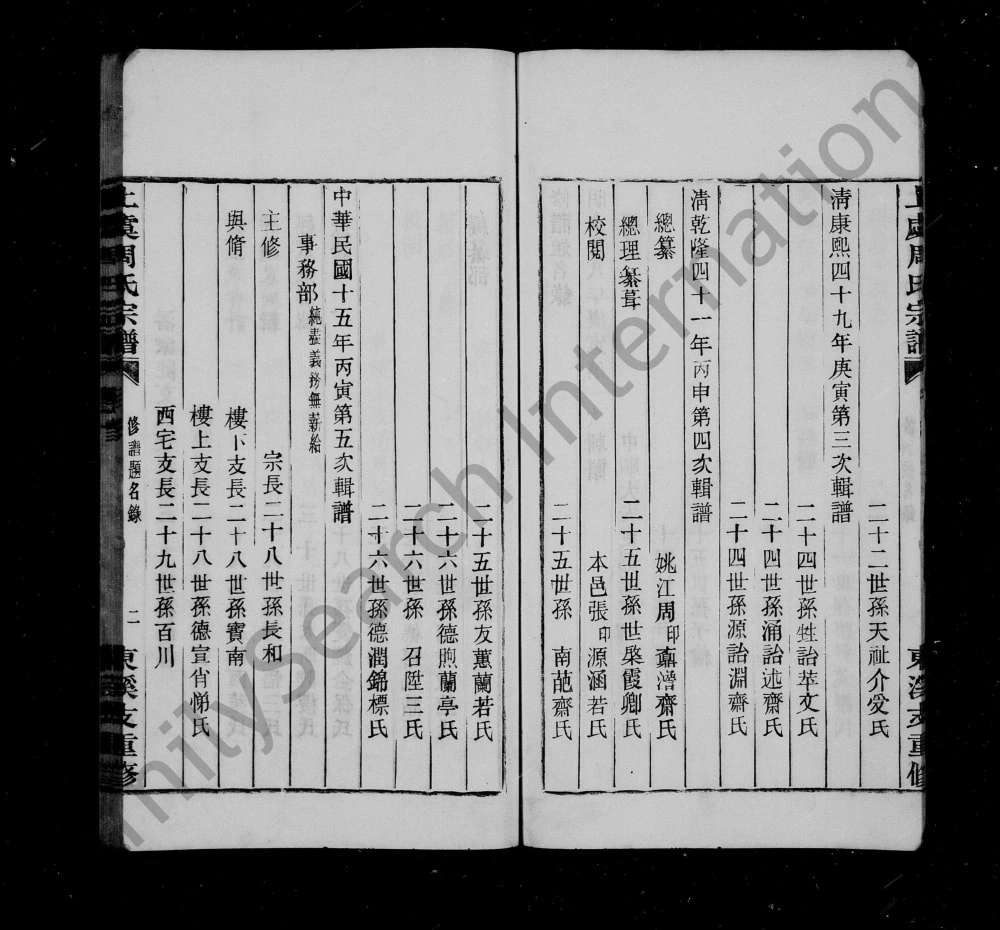 上虞周氏宗譜
東溪支重修
二十二世孫天祉介愛氏
清康熙四十九年庚寅第三次輯譜
二十四世孫甡詒萃文氏
二十四世孫涌詒述齋氏
二十四世孫源詒淵齋氏
清乾隆四十一年丙申第四次輯譜
總纂 姚江周印 灊齋氏
總理纂葺 二十五世孫世棨霞卿氏
校閱 本邑張印源涵若氏
二十五世孫 南苞齋氏
二十五世孫友蕙蘭若氏
二十六世孫德煦蘭亭氏
二十六世孫 召陞三氏
二十六世孫德潤錦標氏
中華民國十五年丙寅第五次輯譜
事務部 純盡義務無薪給
主修 宗長二十八世孫長和
與脩 樓下支長二十八世孫寶南
樓上支長二十八世孫德宣省悌氏
西宅支長二十九世孫百川
上虞周氏宗譜 修譜題名錄 二 東溪支重修
FamilySearch International